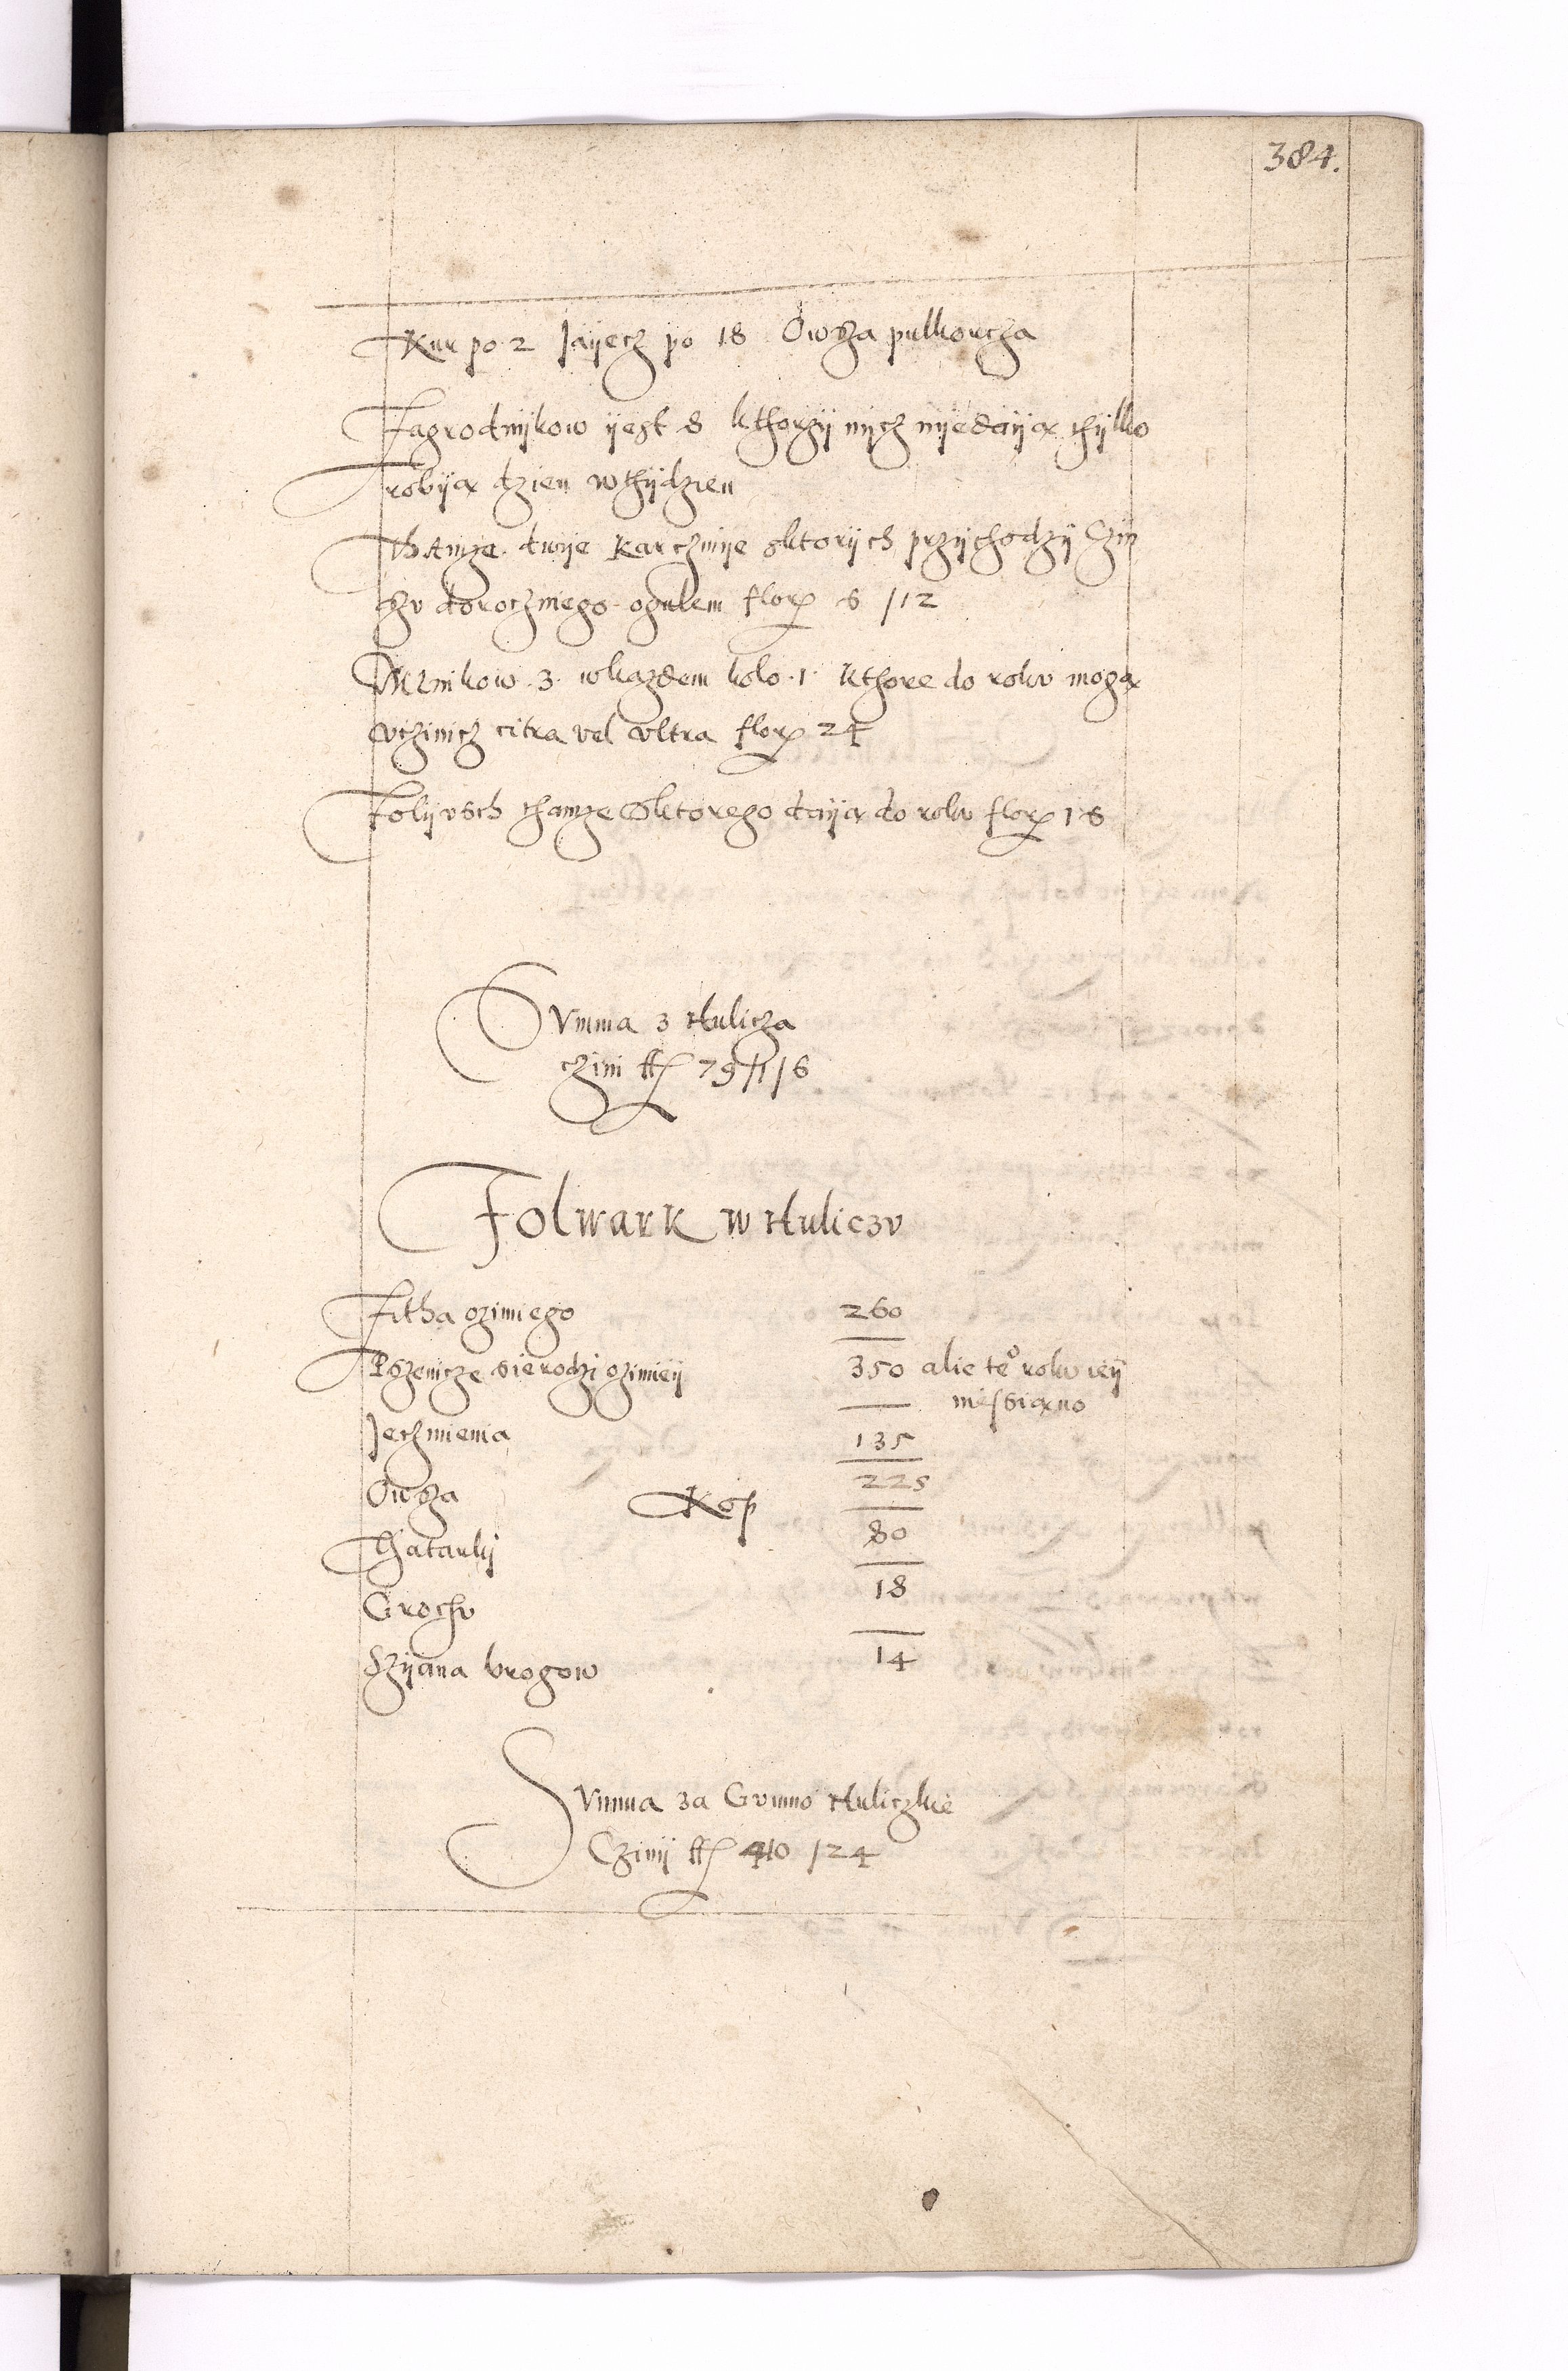 384.
Kur po 2 Jaÿecz po 18 Owsza pulkorcza
Zagrodnÿkow ÿest 8 kthorzÿ nicz nÿedaÿą thÿlko
robÿą dzien wthÿdzien
Thamze dwÿe Karczmÿe sktorÿch przÿchodzÿ Czÿn
szv doroczniego ogulem flor 6 /12
Mlnikow 3 wkazdem kolo 1 kthore do rokv mogą
vczinicz citra vel vltra flor 24
Folvsch thamze sktorego daÿą do rokv flor 16
Svmma z Hulicza
czini fl 79/1/6
Folwark w Huliczv
Zitha ozimiego 260
Pszenicze sierodzi ozimieÿ 350 alie te° rokv ieÿ
niessiano
Jeczmienia 135
Owsza Kop 225
Thatarkÿ 80
Grochv 18
Szÿana brogow 14
Svmma za Gvmno Huliczkie
Czinÿ fl 410 /24